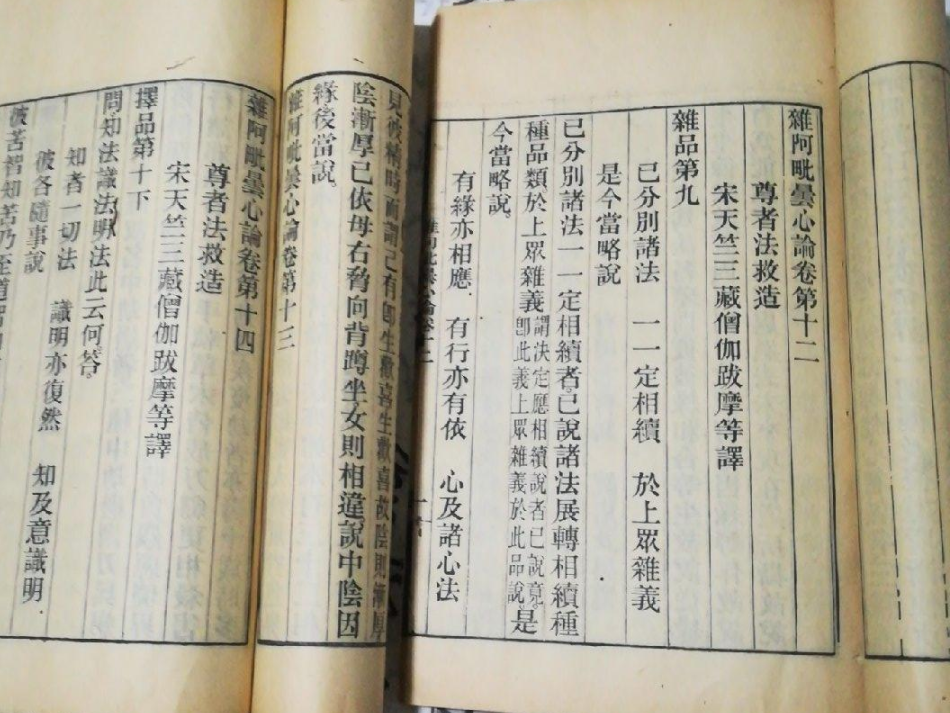 雜阿毗曇心論卷第十二
尊者法救造
宋天竺三藏僧伽跋摩等譯
雜品第九
已分別諸法 一一定相續 於上眾雜義
是今當略說
已分別諸法一一定相續者已說諸法展轉相續種
種品類於上眾雜義謂決定應相續說者已說竟即此義上眾雜義於此品說是
今當略說
有緣亦相應 有行亦有依 心及諸心法
陰漸厚已依母右脅向背蹲坐女則相違說中陰因
緣後當說
雜阿毗曇心論卷第十三
雜阿毗曇心論卷第十四
尊者法救造
宋天竺三藏僧伽跋摩等譯
擇品第十下
問知法識法明法此云何答
知者一切法 識明亦復然 知及意識明
彼各隨事說